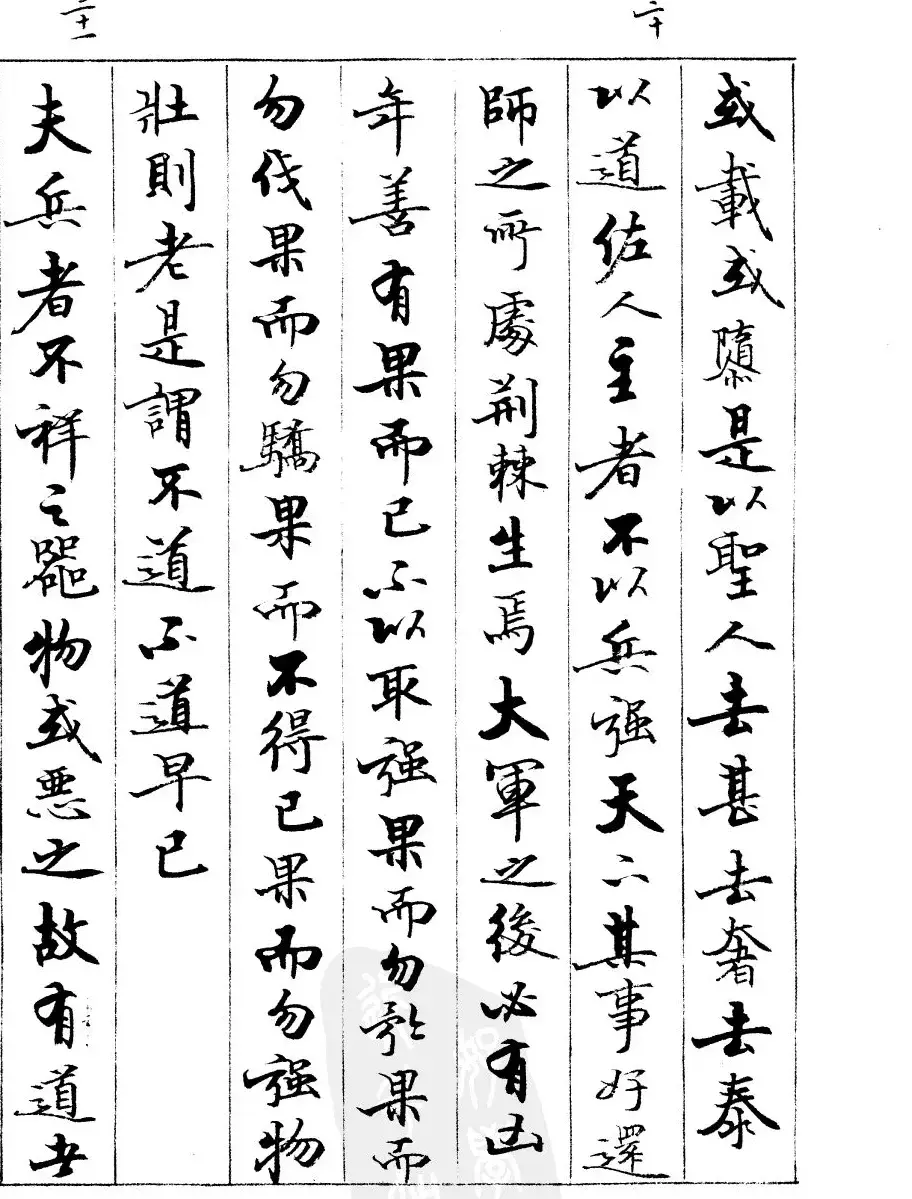 或載或隳是以聖人去甚去奢去泰
三十
以道佐人主者不以兵强天下其事好還
師之所處荆棘生焉大軍之後必有凶
年善有果而已不以取强果而勿矜果而
勿伐果而勿驕果而不得已果而勿强物
壯則老是謂不道不道早已
三十一
夫兵者不祥之器物或惡之故有道者